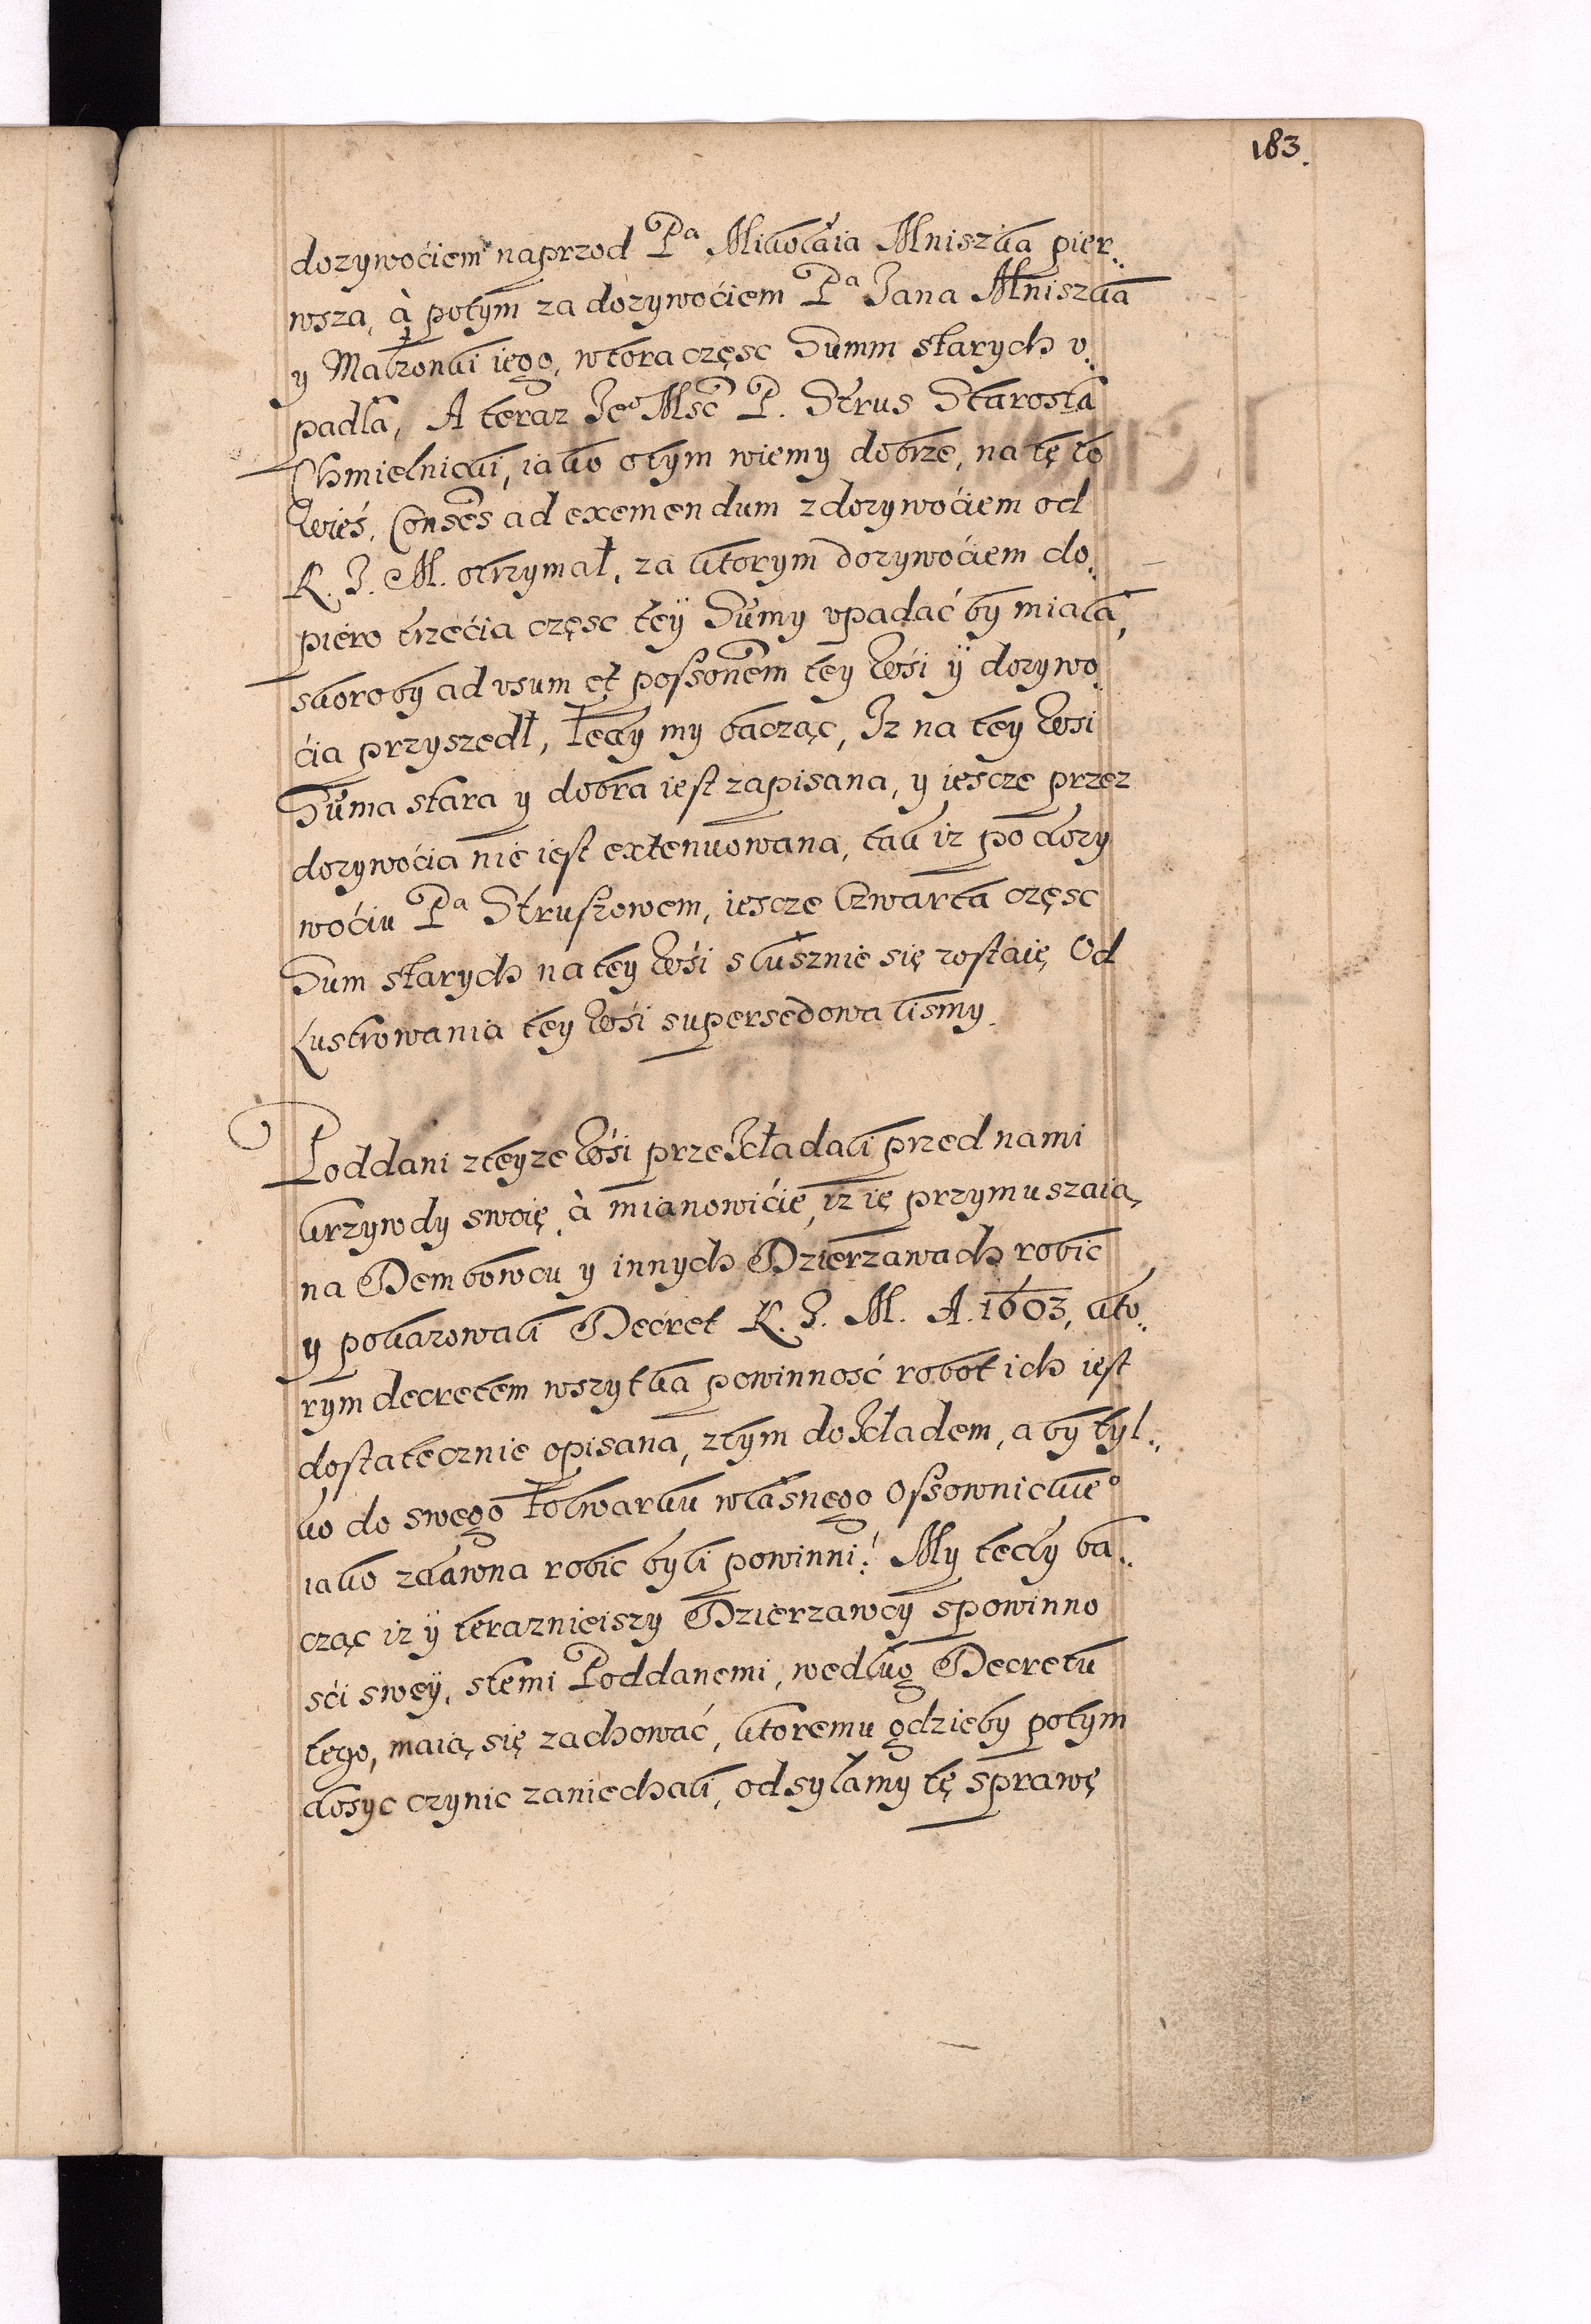 183.
dozywoćiem naprzod Pa Mikołaia Mniszka pier..
wsza, à potym za dozywoćiem Pa Jana Mniszka
y Małzonki iego, wtora częsc Summ starych v.
padła, A teraz Jeo Msć P. Strus Starosta
Chmielnicki, iako otym wiemy dobrze, na tę to
Wieś, Consēs ad exemendum z dozywoćiem od
K. J. M. otrzymał, za ktorym dozywoćiem do.
piero trzećia częsc teÿ Sumy vpadać by miała,
skoro by ad vsum et possonem tey Wśi ÿ dozywo
ćia przyszedł, tedy my bacząc, Iz na tey Wśi
Suma stara y dobra iest zapisana, y iescze przez
dozywoćia nie iest extenuowana, tak iz po dozy
woćiu Pa Strussowem, iescze Czwarta częsc
Sum starych na tey Wśi słusznie się zostaię, Od
Lustrowania tey Wśi supersedowalismy.
Poddani zteyze Wśi przekładali przed nami
krzywdy swoię, à mianowićie, iz ię przymuszaią,
na Dembowcu y innych Dzierzawach robic
y pokazowali Decret K. J. M. A. 1603, kto..
rym decretem wszytka powinność robot ich iest
dostatecznie opisana, ztym dokładem, aby tyl..
ko do swego Folwarku własnego Ossownickieo
iako zdawna robic byli powinni: My tedy ba..
cząc iz ÿ teraznieiszy Dzierzawcy spowinno
sći sweÿ, stemi Poddanemi, według Decretu
tego, maią się zachować, ktoremu gdzieby potym
dosyc czynic zaniechali, odsyłamy tę sprawę